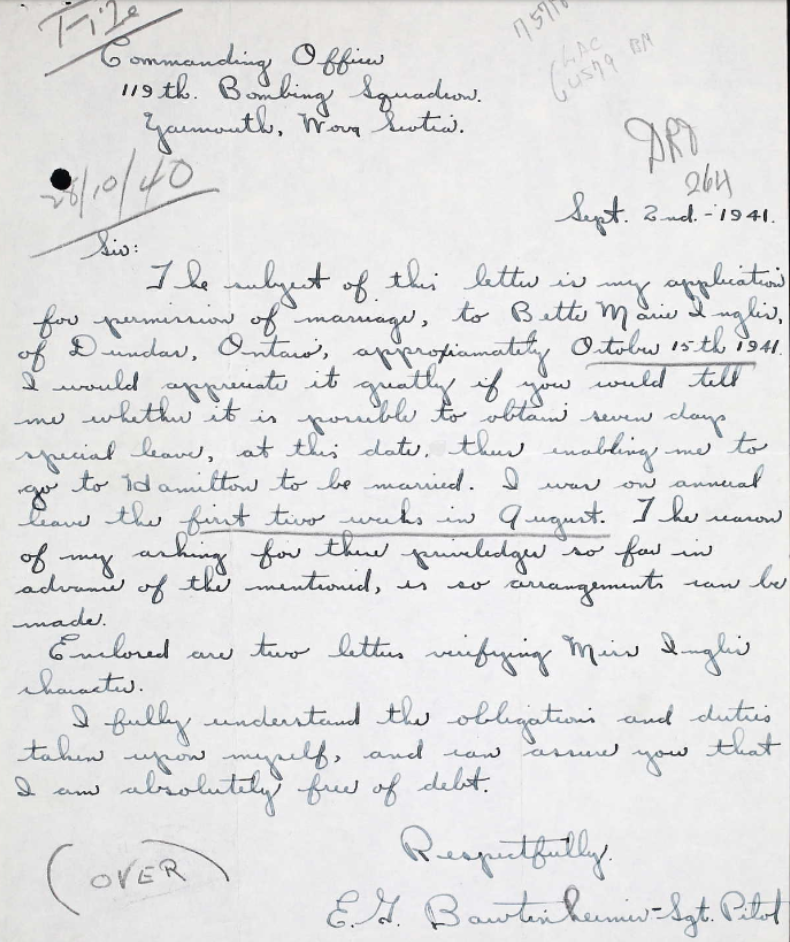 T-12e
75770
LAC
64579 BM
Commanding Officer
119 th. Bombing Squadron.
Yarmouth, Nova Scotia.
28/10/40
DRD
264
Sept. 2nd. - 1941.
Sir:
The subject of this letter is my application
for permission of marriage, to Bette Marie Inglis,
of Dundas, Ontario, approxiamately October 15th 1941.
I would appreciate it greatly if you would tell
me whether it is possible to obtain seven days
special leave, at this date. thus enabling me to
go to Hamilton to be married. I was on annual
leave the first two weeks in August. The reason
of my asking for these priviledges so far in
advance of the mentioned, is so arrangements can be
made.
Enclosed are two letters verifying Miss Inglis
character.
I fully understand the obligations and duties
taken upon myself, and can assure you that
I am absolutely free of debt.
Respectfully.
(OVER)
E. G. Bawtenheimer - Sgt. Pilot